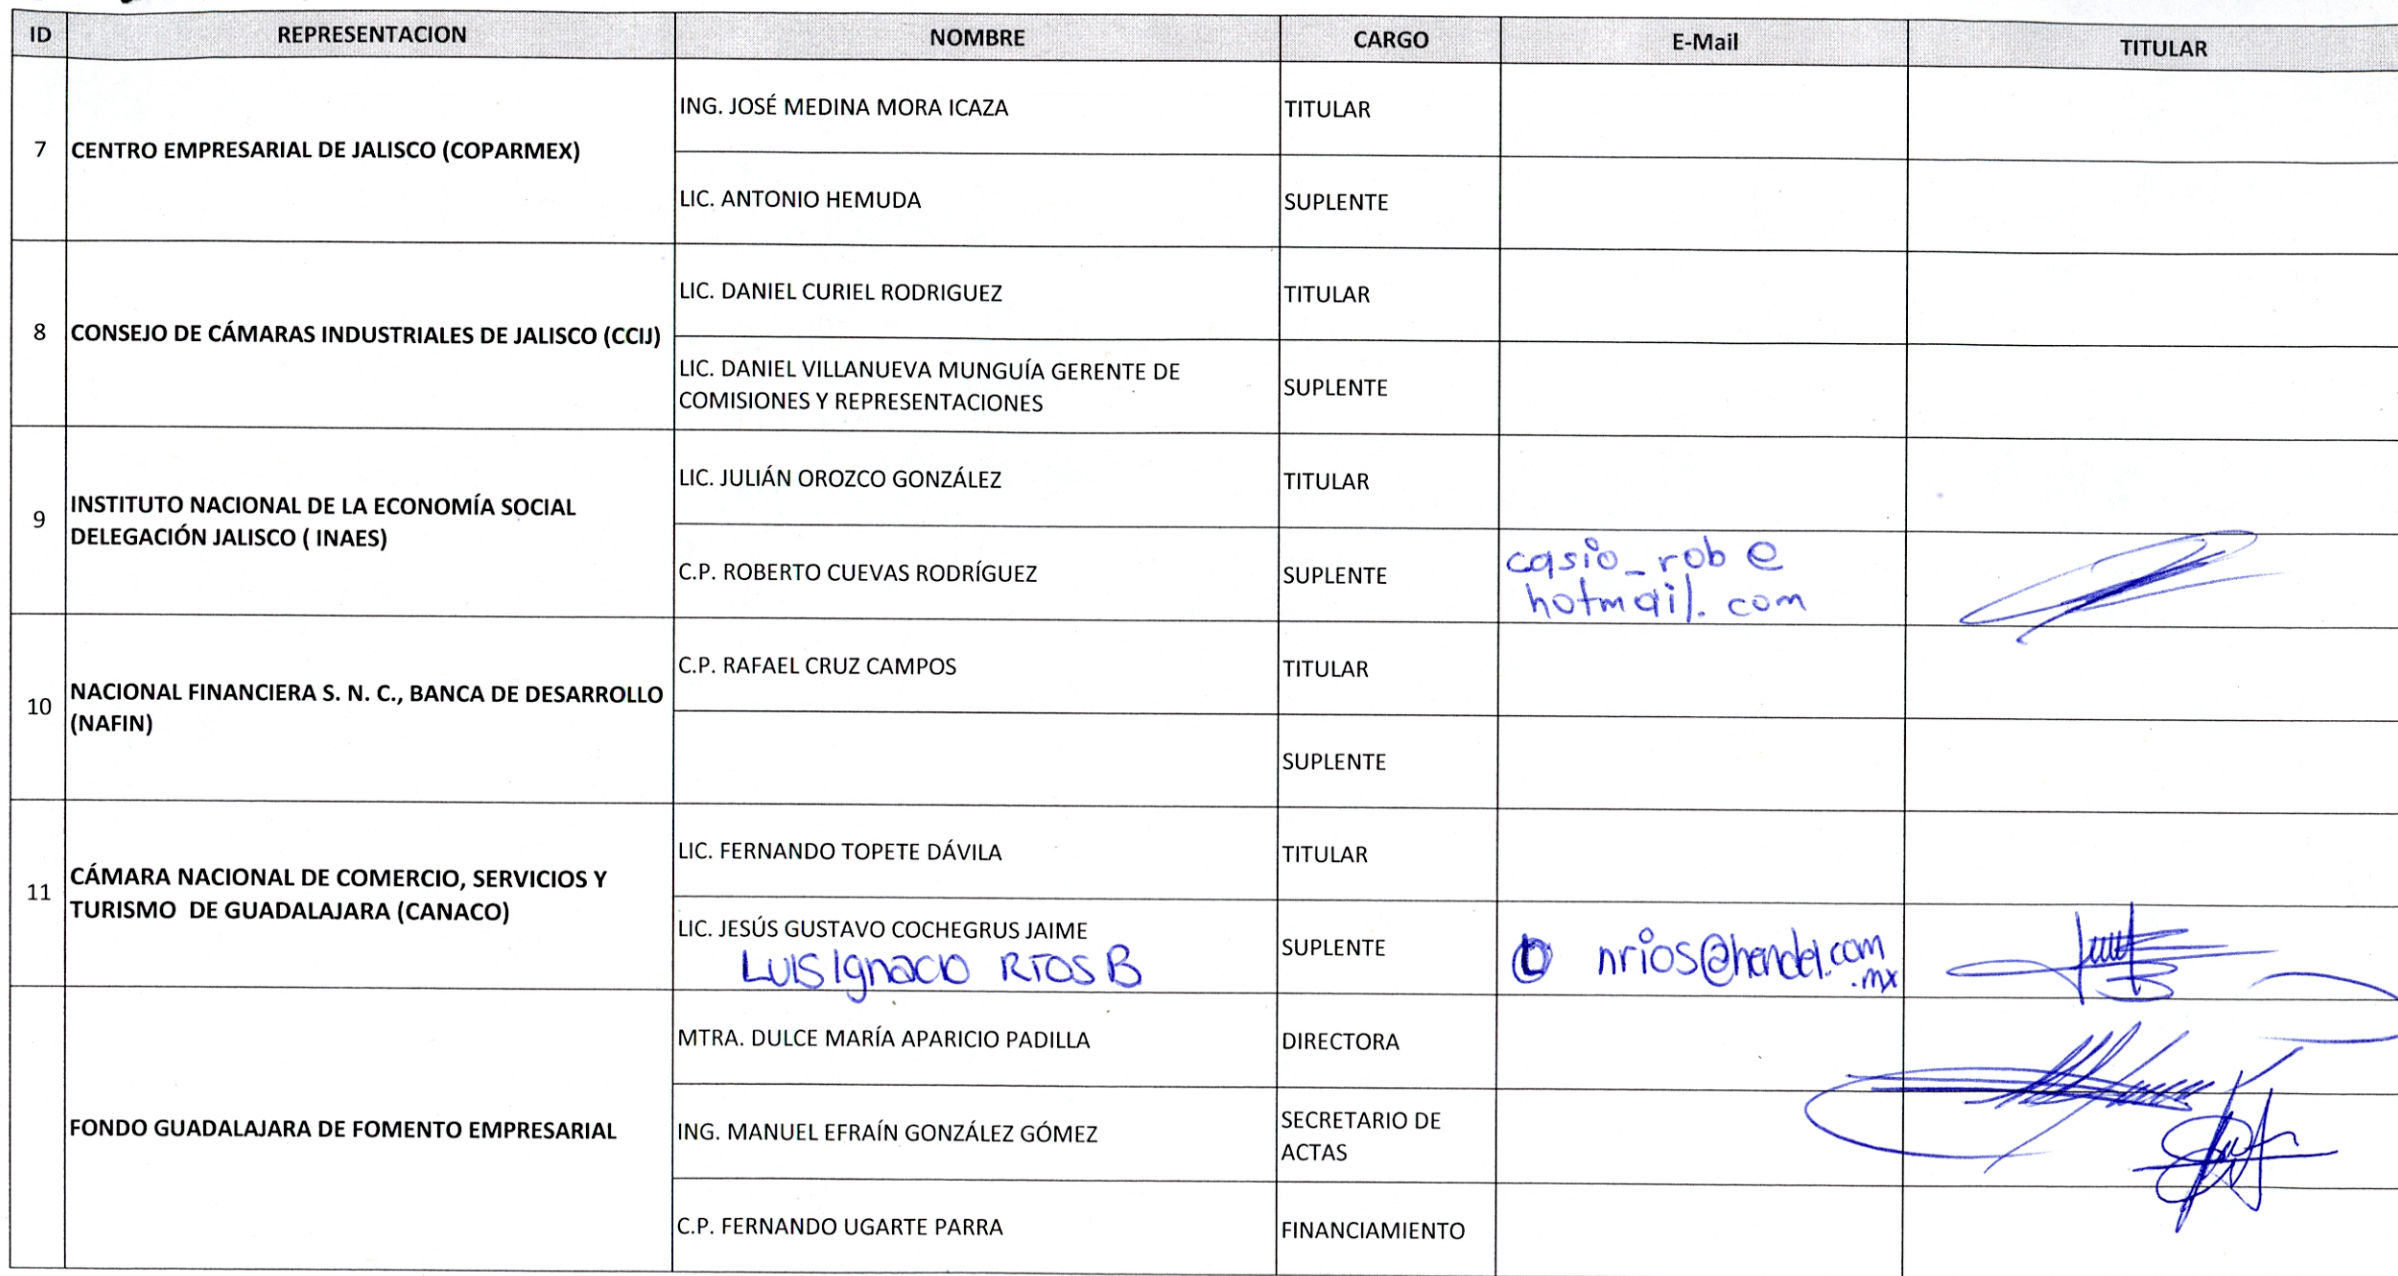 ID REPRESENTACION NOMBRE CARGO E-Mail TITULAR
7 CENTRO EMPRESARIAL DE JALISCO (COPARMEX)
ING. JOSÉ MEDINA MORA ICAZA TITULAR
LIC. ANTONIO HEMUDA SUPLENTE
8 CONSEJO DE CÁMARAS INDUSTRIALES DE JALISCO (CCIJ)
LIC. DANIEL CURIEL RODRIGUEZ TITULAR
LIC. DANIEL VILLANUEVA MUNGUÍA GERENTE DE
COMISIONES Y REPRESENTACIONES
SUPLENTE
9 INSTITUTO NACIONAL DE LA ECONOMÍA SOCIAL
DELEGACIÓN JALISCO ( INAES)
LIC. JULIÁN OROZCO GONZÁLEZ TITULAR
C.P. ROBERTO CUEVAS RODRÍGUEZ SUPLENTE
casio_rob@
hotmail.com
10 NACIONAL FINANCIERA S. N. C., BANCA DE DESARROLLO
(NAFIN)
C.P. RAFAEL CRUZ CAMPOS TITULAR
SUPLENTE
11 CÁMARA NACIONAL DE COMERCIO, SERVICIOS Y
TURISMO DE GUADALAJARA (CANACO)
LIC. FERNANDO TOPETE DÁVILA TITULAR
LIC. JESÚS GUSTAVO COCHEGRUS JAIME
LUIS Ignacio RIOS B
SUPLENTE
nrios@hendel.com
.mx
FONDO GUADALAJARA DE FOMENTO EMPRESARIAL
MTRA. DULCE MARÍA APARICIO PADILLA DIRECTORA
ING. MANUEL EFRAÍN GONZÁLEZ GÓMEZ
SECRETARIO DE
ACTAS
C.P. FERNANDO UGARTE PARRA FINANCIAMIENTO